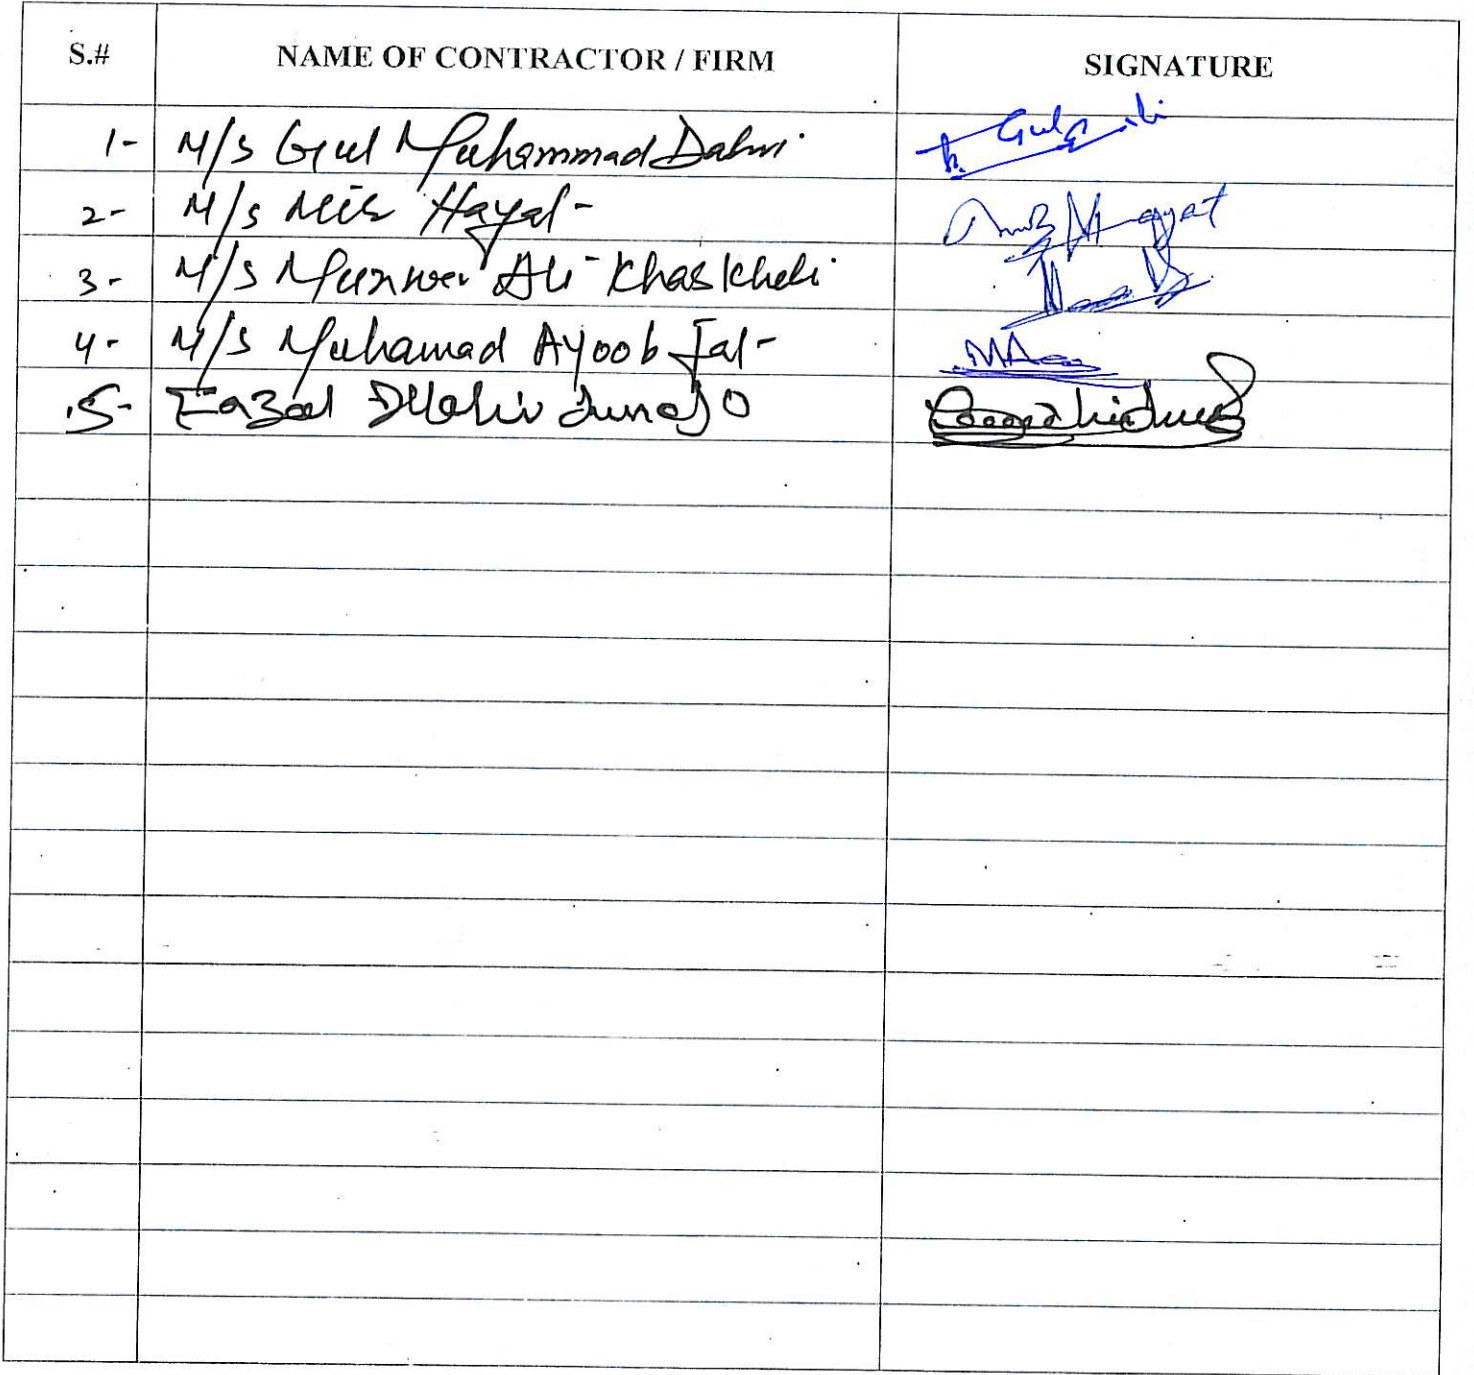 S.# NAME OF CONTRACTOR / FIRM SIGNATURE
1- M/S Gul Muhammad Dahri
2- M/S Hayat
3- M/S Munwer Ali Khaskheli
4- M/S Muhamad Ayoob Jat
5- Fazal Ellahi Junejo